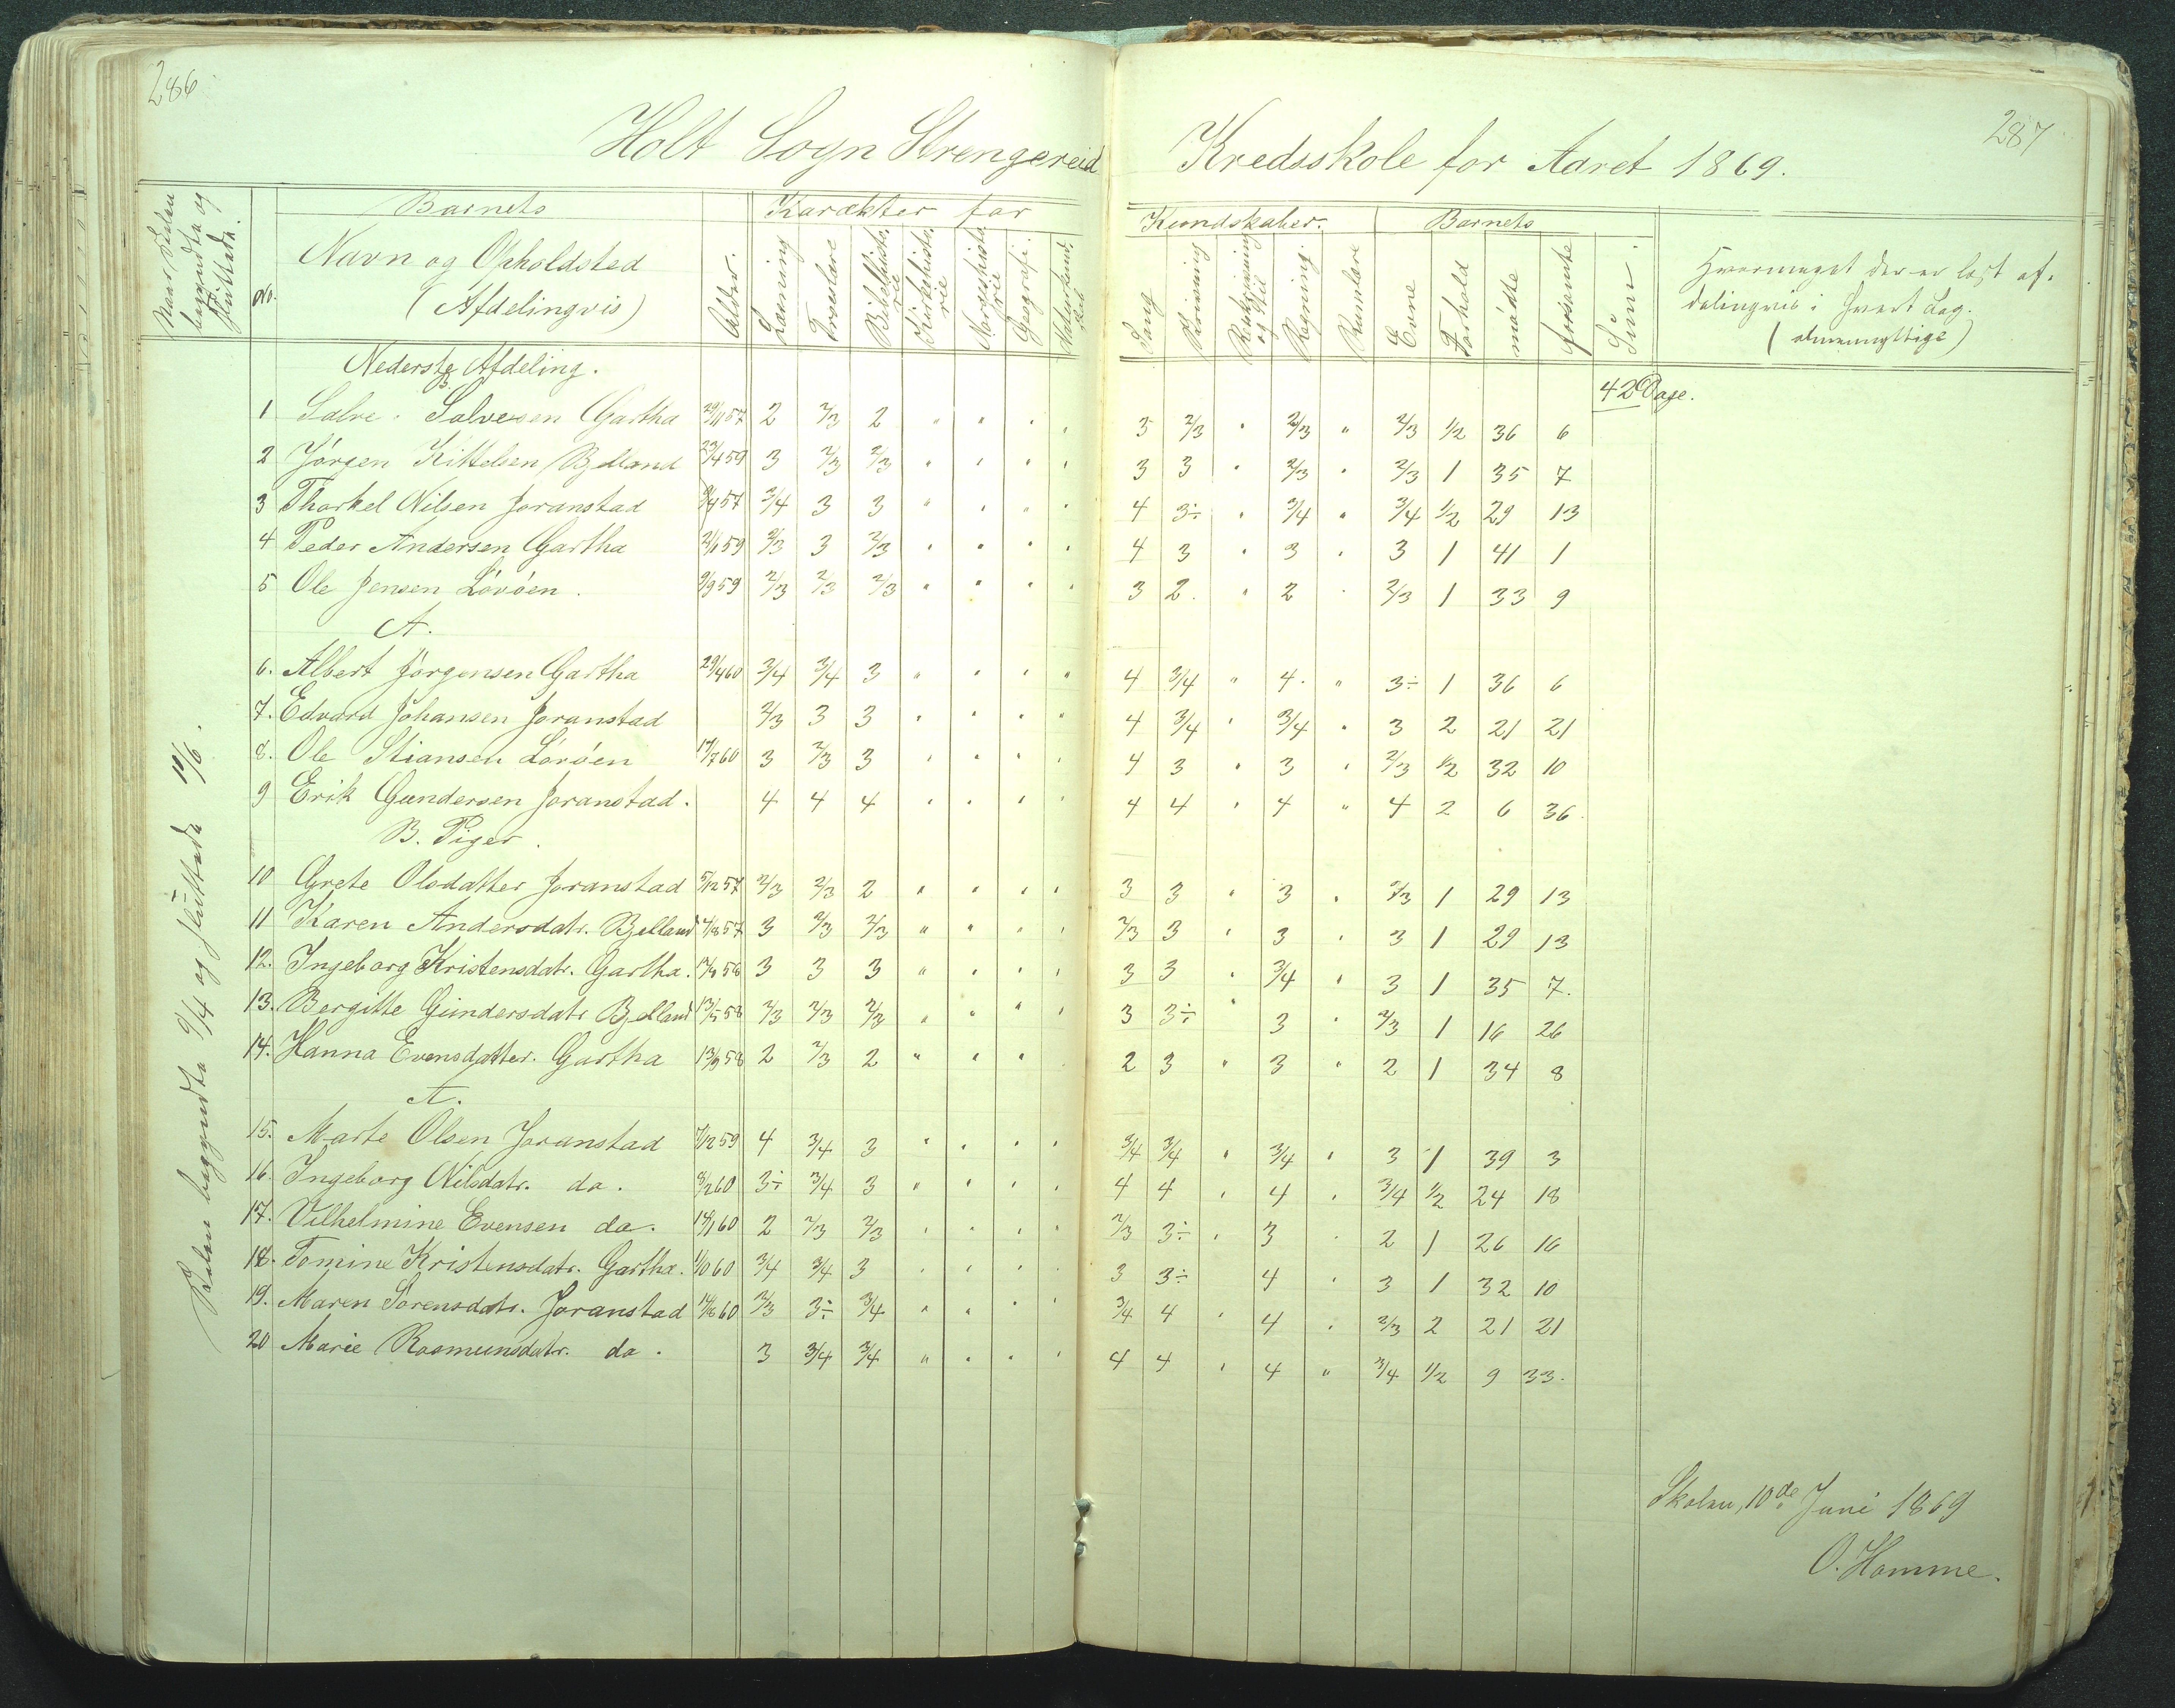 286
287
Holt Sogn Strengereid Kredsskole for Aaret 1869.
Naar Skolen begyndte og sluttede.
No.
Barnets
Navn og Opholdsted
(Afdelingvis)
Alder.
Karakter for Kundskaber.
Læsning
Troeslære
Bibelhistorie
Kirkehistorie
Norgeshistorie
Geografi.
Naturkundskab.
Sang
Skrivning
Retskrivning og Stil
Regning.
Rumlære
Barnets
Evne
Forhold
mødte
forsømte
Sum.
Hvormeget der er læst afdelingvis i hvert Fag.
(almennyttige)
Skolen begyndte 9/4 og sluttede 10/6.
Nederste Afdeling.
B.
42 Dage.
1 Salve Salvesen Gartha 29/11 57 2 2/3 2 " " " " 3 2/3 " 2/3 " 2/3 1/2 36 6
2 Jörgen Kittelsen Bjelland 23/4 59 3 2/3 2/3 " " " " 3 3 " 2/3 " 2/3 1 35 7
3 Thorkel Nilsen Joranstad 57 3/4 3 3 " " " " 4 3÷ " 3/4 " 3/4 1/2 29 13
4 Peder Andersen Gartha 59 2/3 3 2/3 " " " " 4 3 " 3 " 3 1 41 1
5 Ole Jensen Lövöen. 9/9 59 2/3 2/3 2/3 " " " " 3 2. " 2 " 2/3 1 33 9
A.
6. Albert Jörgensen Gartha 29/4 60 3/4 3/4 3 " " " " 4 3/4 " 4. " 3÷ 1 36 6
7. Edvard Johansen Joranstad 2/3 3 3 " " " " 4 3/4 " 3/4 " 3 2 21 21
8. Ole Stiansen Lövöen 17/7 60 3 2/3 3 " " " " 4 3 " 3 " 2/3 1/2 32 10
9 Erik Gundersen Joranstad. 4 4 4 " " " " 4 4 " 4 " 4 2 6 36.
B. Piger.
10 Grete Olsdatter Joranstad 5/12 57 2/3 2/3 2 " " " " 3 3 " 3 " 2/3 1 29 13
11 Karen Andersdatr. Bjelland 4/8 57 3 2/3 2/3 " " " " 2/3 3 " 3 " 3 1 29 13
12. Ingeborg Kristensdatr. Gartha. 58 3 3 3 " " " " 3 3 " 3/4 " 3 1 35 7.
13. Bergitte Gundersdatr Bjelland 13/5 58 2/3 2/3 2/3 " " " " 3 3÷ " 3 " 2/3 1 16 26
14. Hanna Evensdatter. Gartha 13/9 58 2 2/3 2 " " " " 2 3 " 3 " 2 1 34 8
A.
15. Marte Olsen Joranstad 7/12 59 4 3/4 3 " " " " 3/4 3/4 " 3/4 " 3 1 39 3
16. Ingeborg Nilsdatr. do. 8/2 60 3÷ 3/4 3 " " " " 4 4 " 4 " 3/4 1/2 24 18
17. Vilhelmine Evensen do. 14/1 60 2 2/3 2/3 " " " " 2/3 3÷ " 3 " 2 1 26 16
18. Tomine Kristensdatr. Gartha. 1/10 60 3/4 3/4 3 " " " " 3 3÷ 4 " 3 1 32 10
19. Maren Sörensdatr. Joranstad 60 2/3 3÷ 3/4 " " " " 3/4 4 " 4 " 2/3 2 21 21
20 Marie Rasmunsdatr. do. 3 3/4 3/4 " " " " 4 4 " 4 " 3/4 1/2 9 33.
Skolen, 10de Juni 1869
O. Homme.